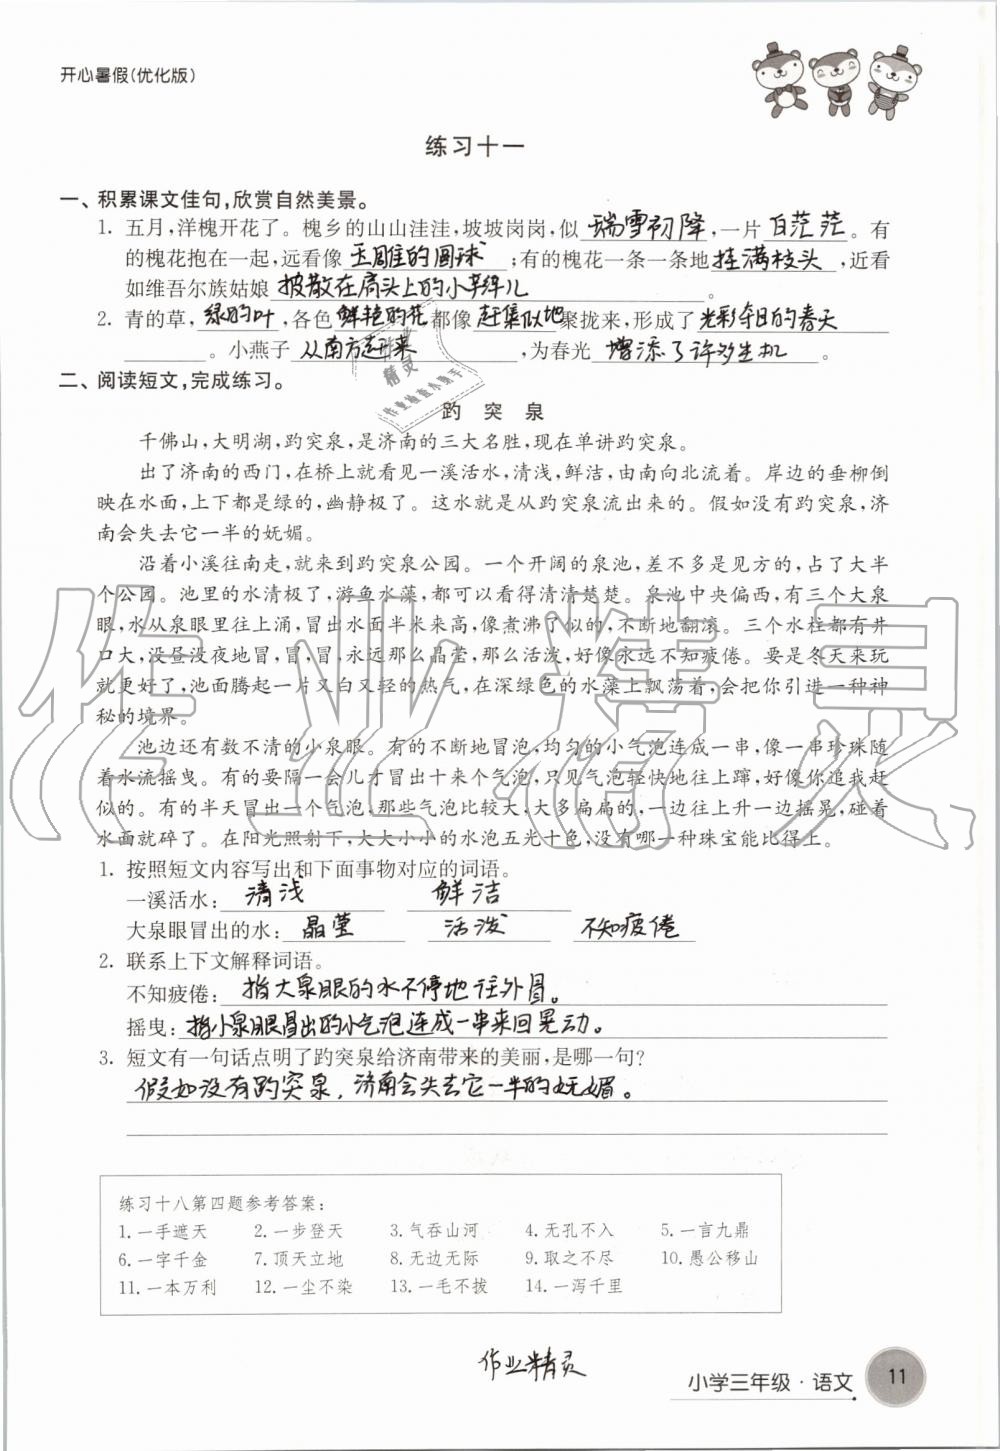 开心暑假(优化版)
练习十一
一、积累课文佳句,欣赏自然美景。
1. 五月,洋槐开花了。槐乡的山山洼洼,坡坡岗岗,似 瑞雪初降,一片 白茫茫。有
的槐花抱在一起,远看像 玉雕的圆球;有的槐花一条一条地 挂满枝头,近看
如维吾尔族姑娘 披散在肩头上的小辫儿。
2. 青的草,绿的叶,各色 鲜艳的花 都像 赶集似地 聚拢来,形成了 光彩夺目的春天
。小燕子 从南方赶来,为春光 增添了许多生机。
二、阅读短文,完成练习。
趵突泉
千佛山,大明湖,趵突泉,是济南的三大名胜,现在单讲趵突泉。
出了济南的西门,在桥上就看见一溪活水,清浅,鲜洁,由南向北流着。岸边的垂柳倒
映在水面,上下都是绿的,幽静极了。这水就是从趵突泉流出来的。假如没有趵突泉,济
南会失去它一半的妩媚。
沿着小溪往南走,就来到趵突泉公园。一个开阔的泉池,差不多是见方的,占了大半
个公园。池里的水清极了,游鱼水藻,都可以看得清清楚楚。泉池中央偏西,有三个大泉
眼,水从泉眼里往上涌,冒出水面半米来高,像煮沸了似的,不断地翻滚。三个水柱都有井
口大,没昼没夜地冒,冒,冒,永远那么晶莹,那么活泼,好像永远不知疲倦。要是冬天来玩
就更好了,池面腾起一片又白又轻的热气,在深绿色的水藻上飘荡着,会把你引进一种神
秘的境界。
池边还有数不清的小泉眼。有的不断地冒泡,均匀的小气泡连成一串,像一串珍珠随
着水流摇曳。有的要隔一会儿才冒出十来个气泡,只见气泡轻快地往上蹿,好像你追我赶
似的。有的半天冒出一个气泡,那些气泡比较大,大多扁扁的,一边往上升一边摇晃,碰着
水面就碎了。在阳光照射下,大大小小的水泡五光十色,没有哪一种珠宝能比得上。
1. 按照短文内容写出和下面事物对应的词语。
一溪活水: 清浅 鲜洁
大泉眼冒出的水: 晶莹 活泼 不知疲倦
2. 联系上下文解释词语。
不知疲倦: 指大泉眼的水不停地往外冒。
摇曳: 指小泉眼冒出的小气泡连成一串来回晃动。
3. 短文有一句话点明了趵突泉给济南带来的美丽,是哪一句?
假如没有趵突泉,济南会失去它一半的妩媚。
练习十八第四题参考答案:
1. 一手遮天 2. 一步登天 3. 气吞山河 4. 无孔不入 5. 一言九鼎
6. 一字千金 7. 顶天立地 8. 无边无际 9. 取之不尽 10. 愚公移山
11. 一本万利 12. 一尘不染 13. 一毛不拔 14. 一泻千里
作业精灵
小学三年级·语文 11
作业精灵